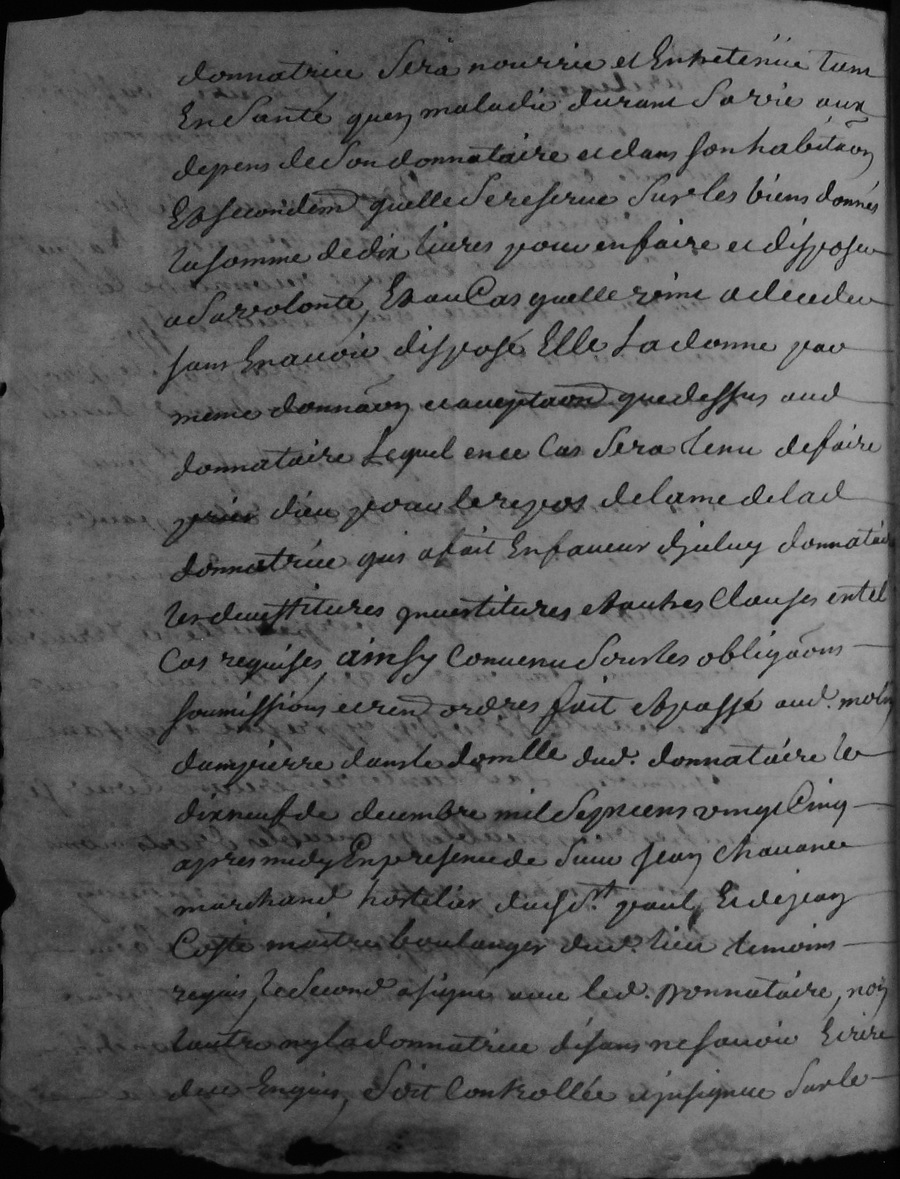 donnatrice Sera nourrie et Entretenüe tant
En Santé quen maladie durant Sa vie aux
depens de Son donnataire et dans son habitaôn
Et secondem̄ quelle Se reserve Sur les biens donnés
la somme de dix livres pour en faire et disposer
a Sa volonté, Et au Cas quelle vint a deceder
sans En avoir disposé Elle La donne par
meme donnaôn et acceptaôn que dessus aud
donnataire Lequel en ce Cas Sera tenu de faire
prier dieu pour le repos de lame de lad
donnatrice qui a fait En faveur djceluy donnatai
les devestitures jnvestitures et autres Clauses en tel
Cas requises, ainsy Convenu Sous les obligaôns
soumissions et rend ordres fait et passé aud.
dampierre dans le domille dud. donnataire le
dix neuf de decembre mil Sept cens vingt Cinq
apres midy En presence de Sieur Jean Chavane
marchand hostelier du d. St. paul, Et de jean
Coste maitre boulanger dud. lieu temoins
requis, le Second a signé avec led. donnataire, non
lautre ny la donnatrice disans ne savoir Ecrire
de ce Enquis, Soit Controllée et jnsignue Sur le